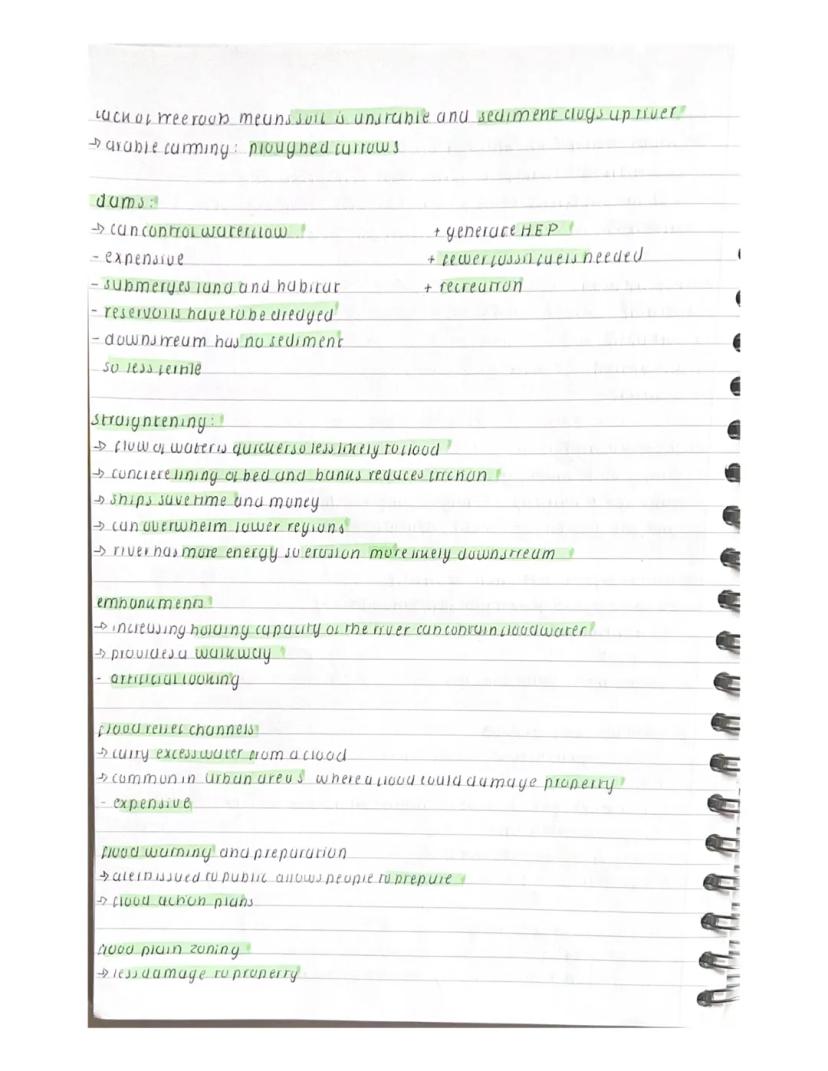 lack of tree roots means soil is unstable and sediment clogs up river
→ arable farming: ploughed furrows
dams:
→ can control waterflow + generate HEP
- expensive + fewer fossil fuels needed
- submerges land and habitat + recreation
- reservoirs have to be dredged
- downstream has no sediment
so less fertile
straightening:
→ flow of water is quicker so less likely to flood
→ concrete lining of bed and banks reduces friction
→ ships save time and money
→ can overwhelm lower regions
→ river has more energy so erosion more likely downstream
embankments
→ increasing holding capacity of the river can contain floodwater
→ provides a walkway
- artificial looking
flood relief channels
→ carry excess water from a flood
→ common in urban areas where a flood could damage property
- expensive
flood warning and preparation
→ alerts issued to public allows people to prepare
→ flood action plans
flood plain zoning
→ less damage to property